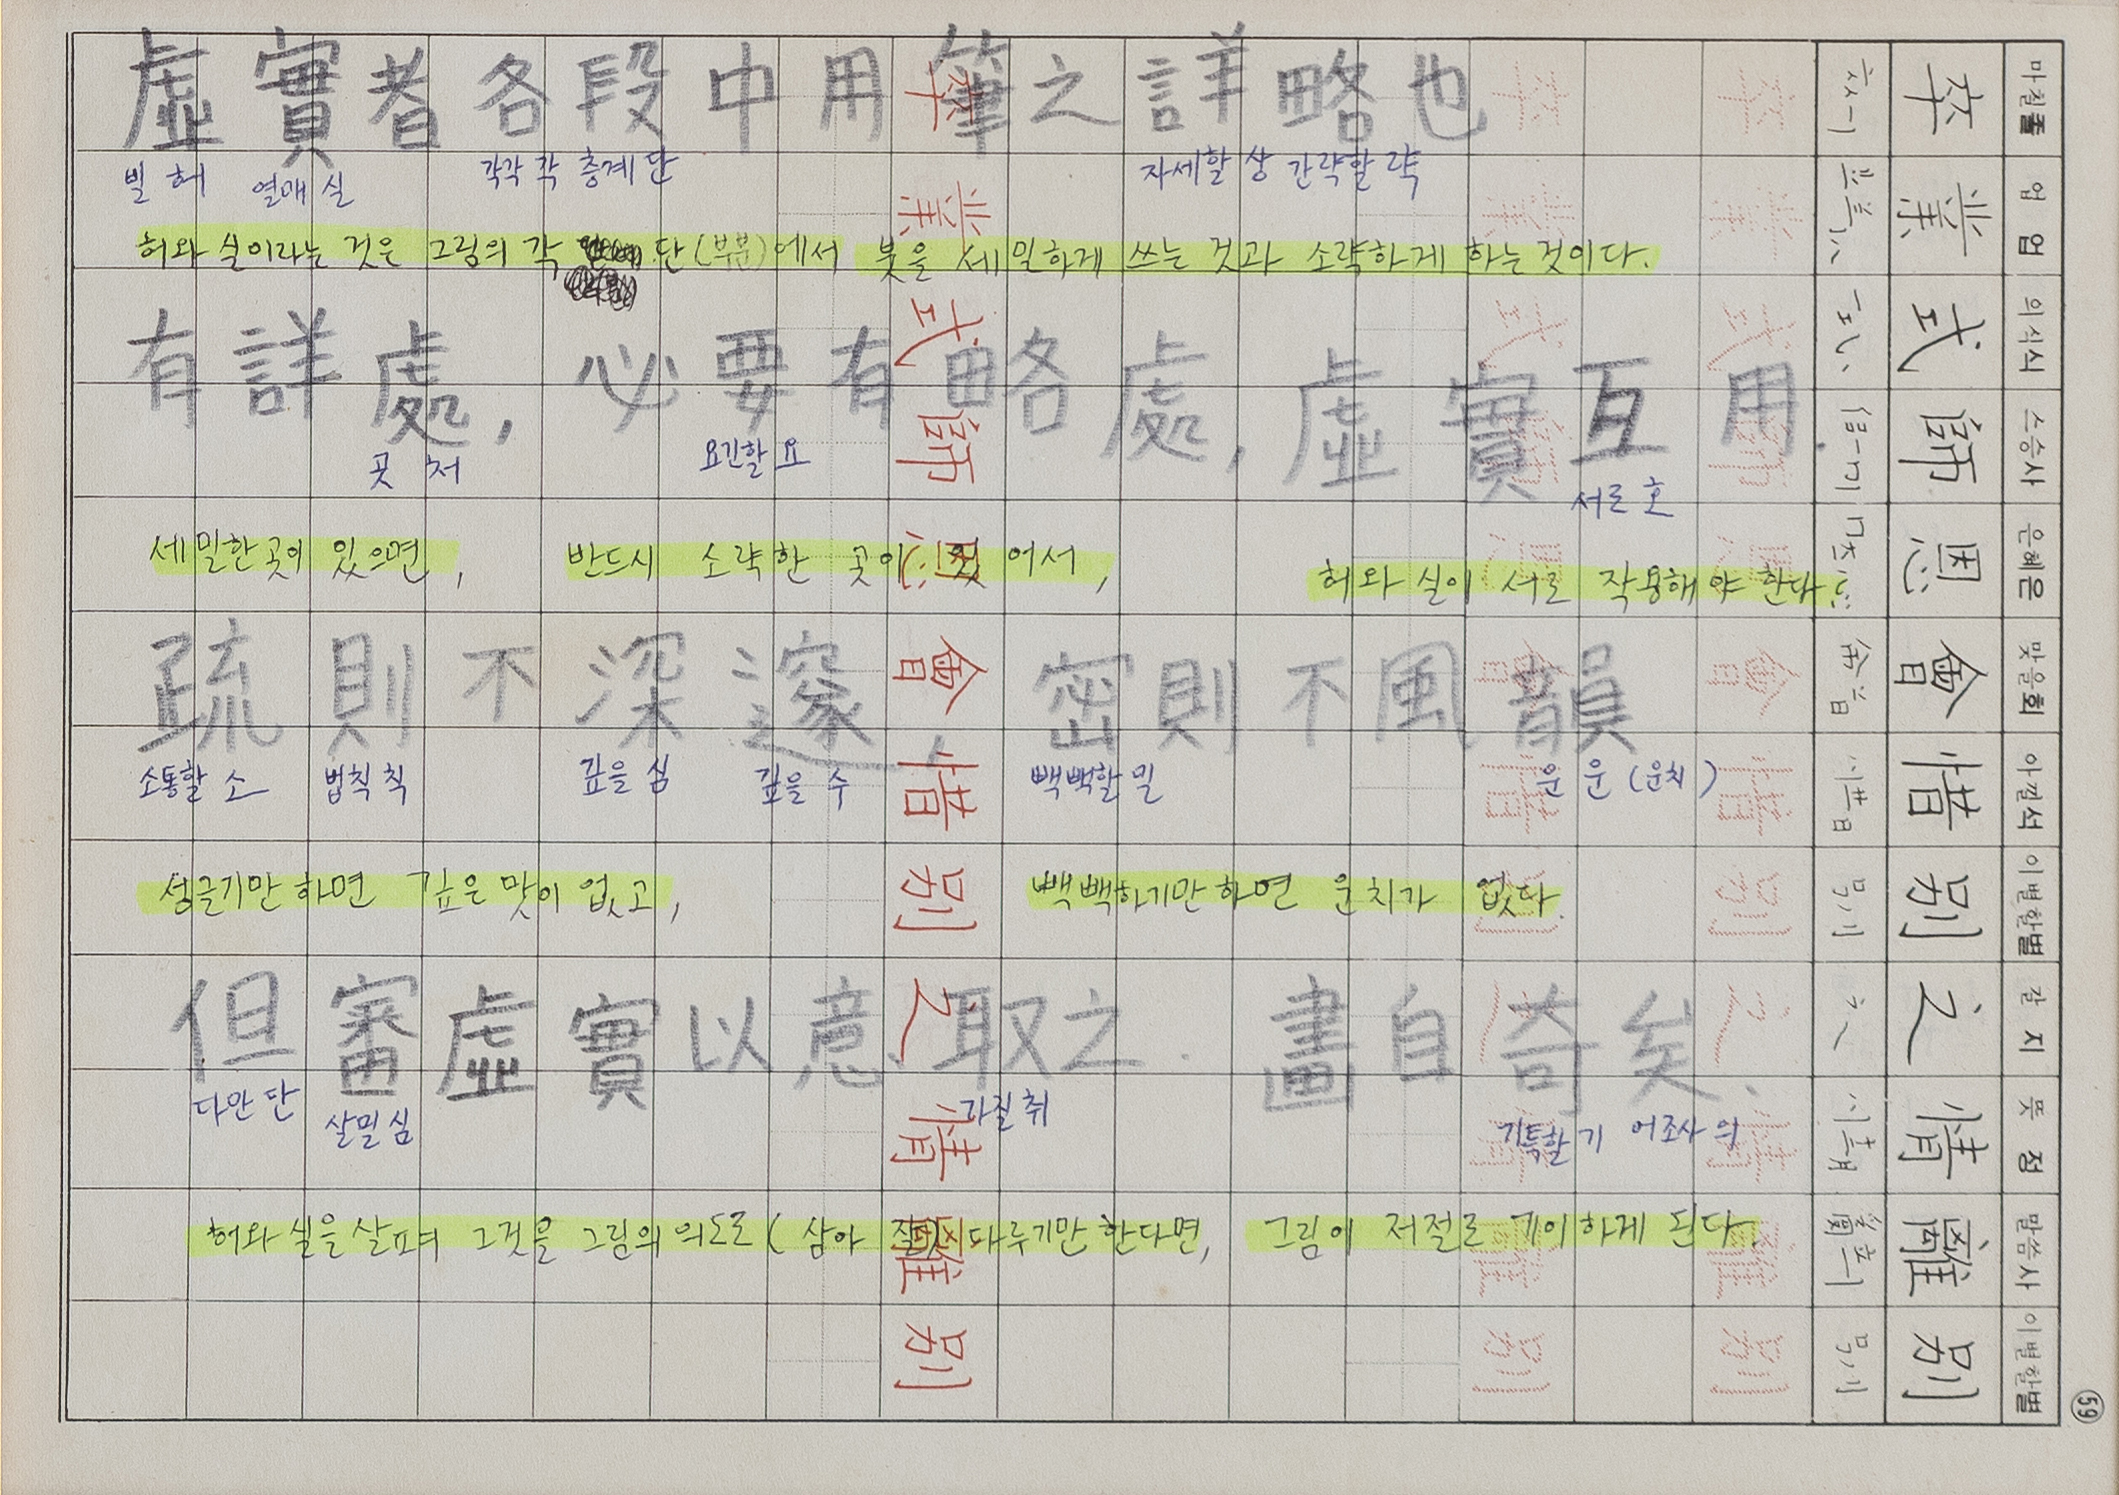 虛實者各段中用筆之詳略也
빌 허 열매 실 각각 각 층계 단 자세할 상 간략할 략
허와 실이라는 것은 그림의 각 단(부분)에서 붓을 세밀하게 쓰는 것과 소략하게 하는것이다.
有詳處, 必要有略處, 虛實互用.
곳 처 요긴할 요 서로 호
세밀한곳이 있으면, 반드시 소략한 곳이 있어서, 허와 실이 서로 작용해야 한다.
疏則不深邃, 密則不風韻
소통할 소 법칙 칙 깊을 심 깊을 수 빽빽할 밀 운 운 (운치)
성글기만 하면 깊은 맛이 없고, 빽빽하기만 하면 운치가 없다.
但審虛實以意取之. 畫自奇矣.
다만 단 살필 심 가질 취 기특할 기 어조사 의
허와 실을 살펴 그것을 그림의 의도로(삼아 잘) 다루기만 한다면, 그림이 저절로 기이하게 된다.
마칠졸 업 업 의식식 스승사 은혜은 맞을회 아낄석 이별할별 갈 지 뜻 정 말씀사 이별할별
卒業式師恩會惜別之情離別
卒業式師恩會惜別之情離別
卒業式師恩會惜別之情離別
卒業式師恩會惜別之情離別
59